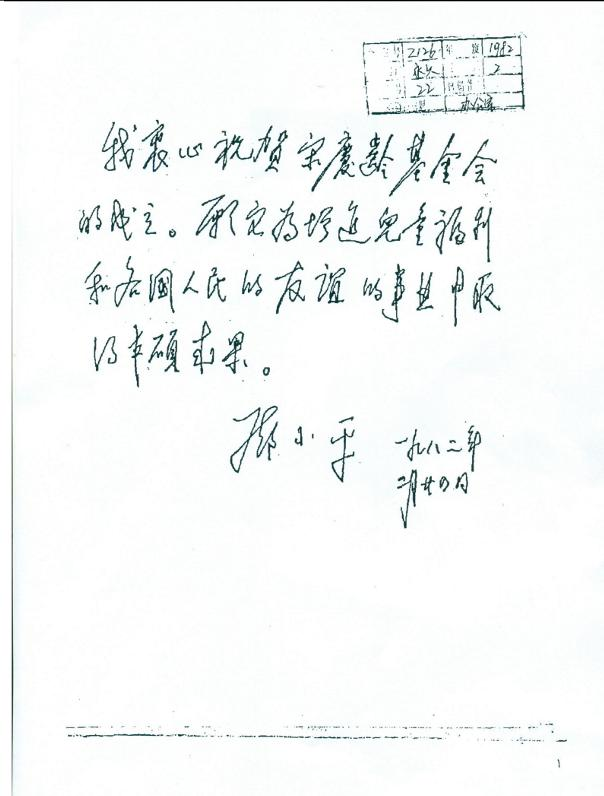 2126 年度 1982
永久 2
22
办公室
我衷心祝贺宋慶龄基金会
的成立。願它为增進兒童福利
和各國人民的友谊的事业中取
得丰碩成果。
邓小平 一九八二年
二月廿四日
1